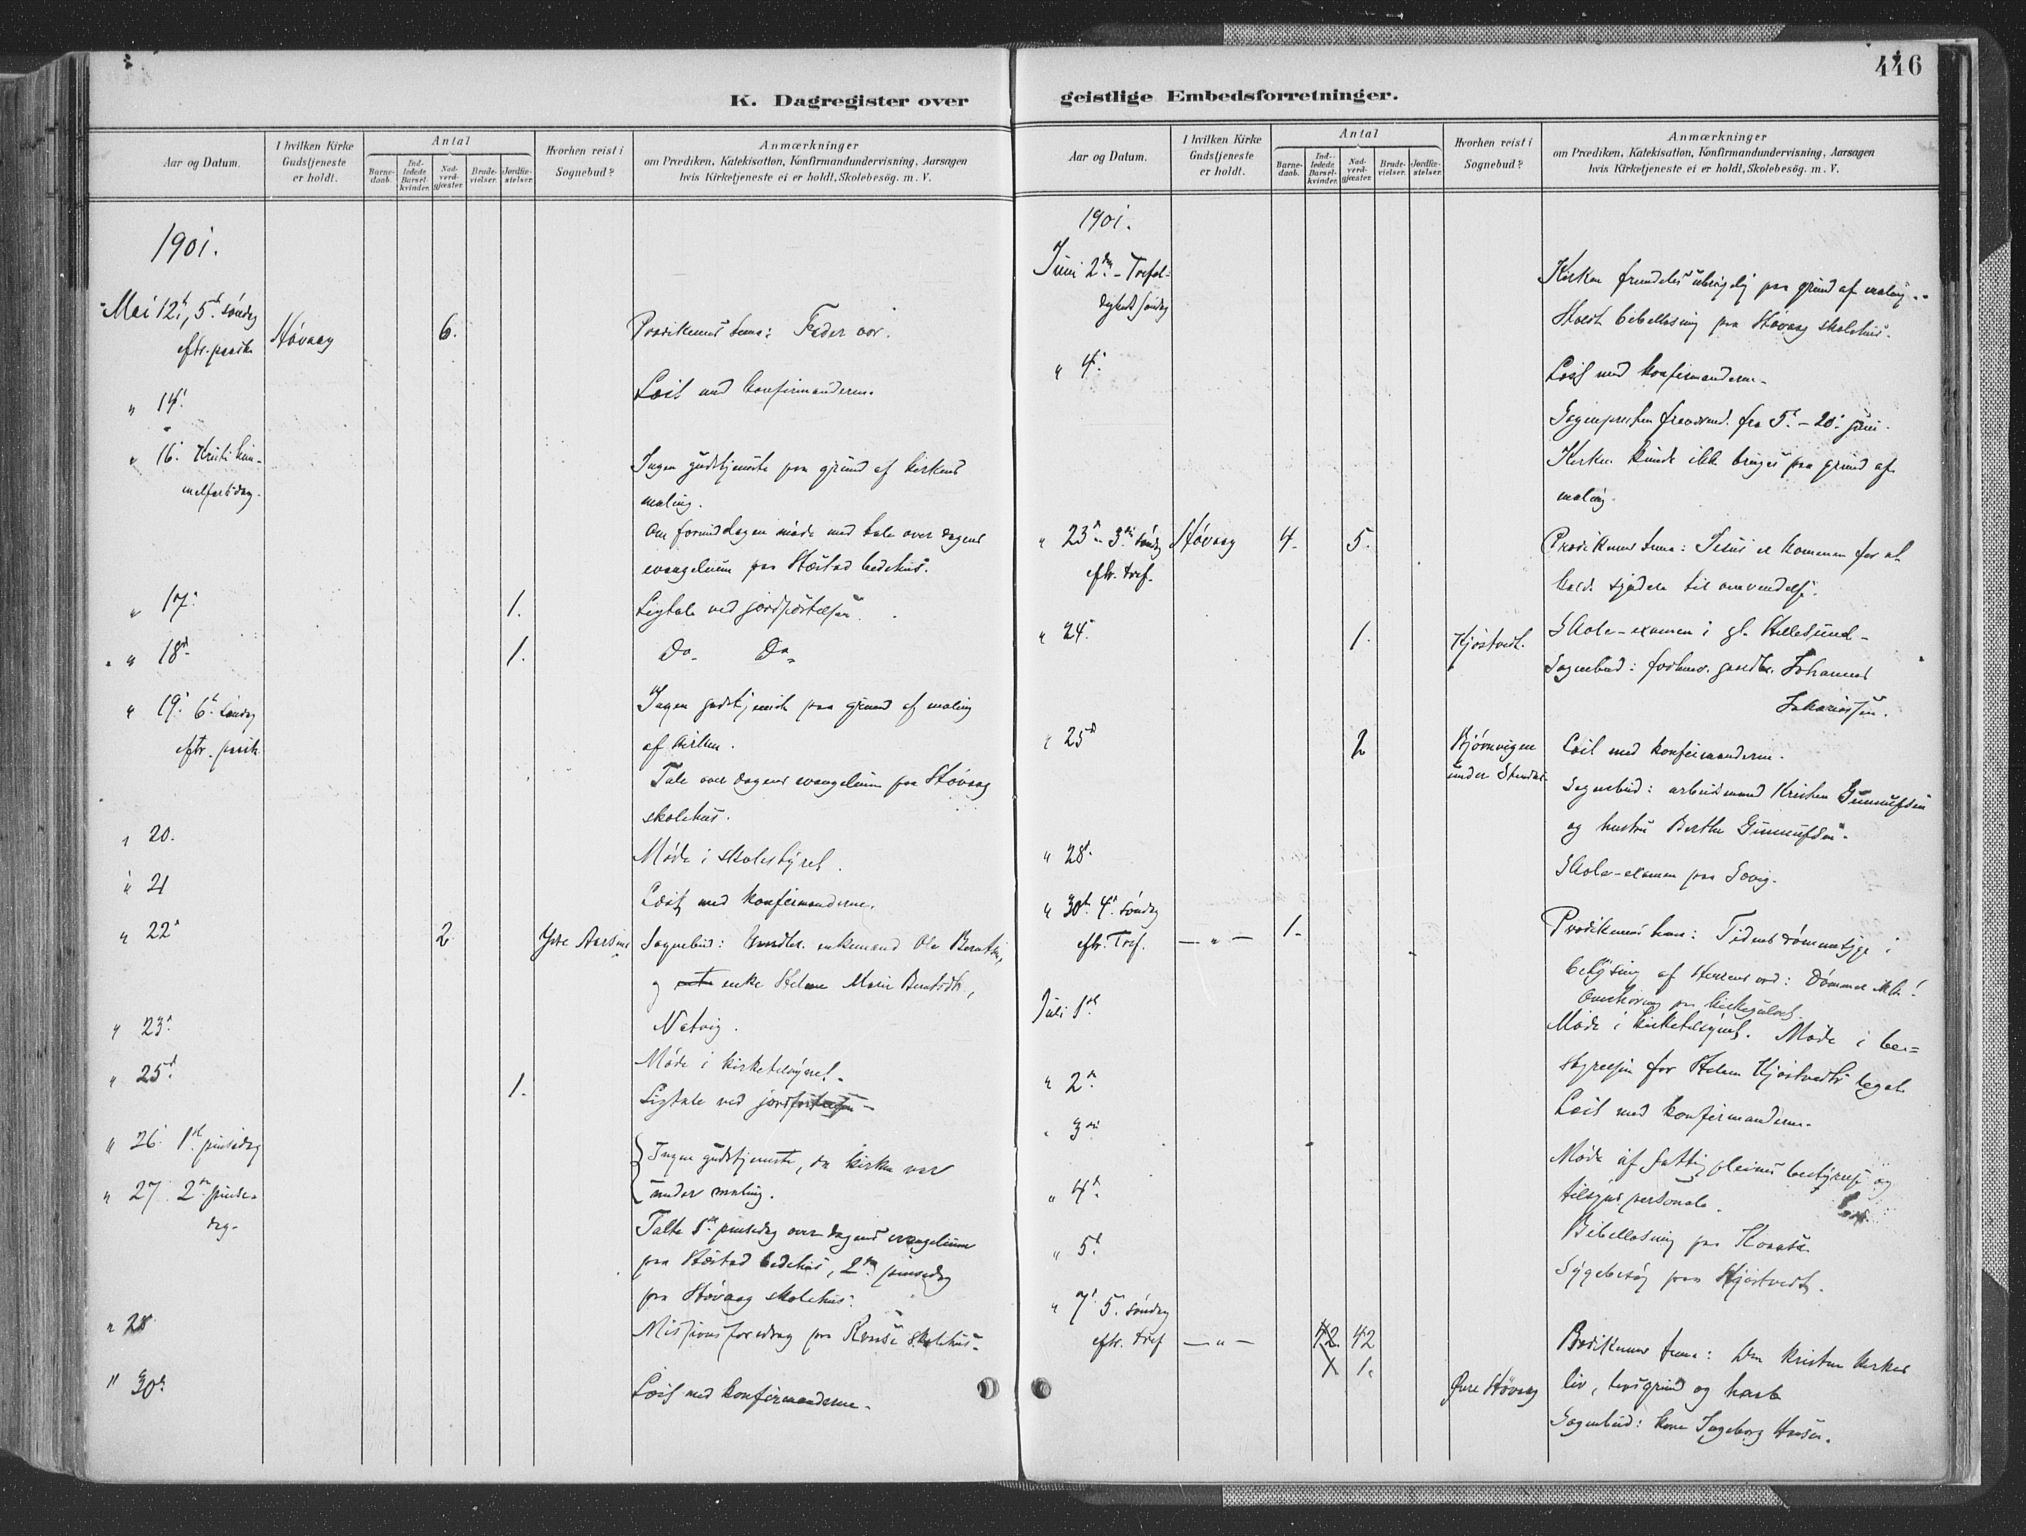 446
K. Dagregister over
geistlige Embedsforretninger.
Aar og Datum.
I hvilken Kirke
Gudstjeneste
er holdt.
Antal
Barne-
daab.
Ind-
ledede
Barsel-
kvinder.
Nad-
verd-
gjæster.
Brude-
vielser.
Jordfæ-
stelser.
Hvorhen reist i
Sognebud?
Anmærkninger
om Prædiken, Katekisation, Konfirmandundervisning, Aarsagen
hvis Kirketjeneste ei er holdt, Skolebesøg. m. V.
1901.
Mai 12te, 5te søndag
eftr. paaske
Høvaag
6.
Prædikenens tema: Fader vor.
" 14.
Læst med konfirmanderne.
" 16. Kristi him-
melfartsdag.
Ingen gudstjeneste paa grund af kirkens
maling.
Om formiddagen møde med tale over dagens
evangelium paa Hæstad bedehus.
" 17.
1.
Ligtale ved jordfæstelsen.
" 18de
1.
Do. Do.
" 19. 6te søndag
eftr. paask.
Ingen gudstjeneste paa grund af maling
af kirken.
Tale over dagens evangelium paa Høvaag
skolehus.
" 20.
Møde i skolestyret.
" 21
Læst med konfirmanderne.
" 22
2
Sognebud: enkemand Ole Berntsen,
og enke Helene Marie Berntsdtr,
Natvig.
" 23.
Møde i kirketilsynet.
" 25de
1.
Ligtale ved jordfæstelsen
" 26. 1ste pinsedag
" 27. 2den pinse-
dag.
Ingen gudstjeneste, da kirken var
under maling.
Talte 1ste pinsedag over dagens evangelium
paa Hæstad bedehus, 2den pinsedag
paa Høvaag skolehus.
" 28
Missionsforedrag paa skolehus.
" 30te
Læst med konfirmanderne.
Aar og Datum.
I hvilken Kirke
Gudstjeneste
er holdt.
Antal
Barne-
daab.
Ind-
ledede
Barsel-
kvinder.
Nad-
verd-
gjæster.
Brude-
vielser.
Jordfæ-
stelser.
Hvorhen reist i
Sognebud?
Anmærkninger
om Prædiken, Katekisation, Konfirmandundervisning, Aarsagen
hvis Kirketjeneste ei er holdt, Skolebesøg. m. V.
1901.
Juni 2den - Trefol-
digheds søndag
Kirken fremdeles ubrugelig paa grund af maling.
Holdt bibellæsning paa Høvaag skolehus.
" 4.
Læst med konfirmanderne.
Sognepresten fraværend. fra 5te - 20. juni.
Kirken kunde ikke bruges paa grund af
maling.
" 23de 3die søndag
eftr. tref.
Høvaag
4.
5.
Prædikenens tema: Jesus er kommen for at
kalde syndere til omvendelse.
" 24.
1.
Kjøstvedt.
Skole-examen i gl. Hellesund.
Sognebud: forhenv. gaardbr. Johannes
" 25de
2
Bjørnvigen
under
Læst med konfirmanderne.
Sognebud: arbeidsmand Kristen Gunnufsen
og hustru Berthe Gunnufsen.
" 28.
Skole-examen paa
" 30te 4. søndag
eftr. Tref.
— " —
1.
Prædikenens tema: Tidens dømmesyge i
belysning af Herrens ord: Dømmer ikke!
Juli 1ste
Møde i kirketilsynet. Møde i be-
styrelsen for Helene Kjøstvedts legat
" 2.
Læst med konfirmanderne.
" 3die
Møde af fattigpleiens bestyrelse og
tilsynspersonale.
" 4de
Bibellæsning paa
" 5te
Sygebesøg paa Kjøstvedt.
" 7. 5. søndag
eftr. tref
— " —
42.
42
1.
Øvre Høvaag
Prædikenens tema: Den kristne kirkes
liv, livsgrund og haab
Sognebud: kone Ingeborg Hansen.